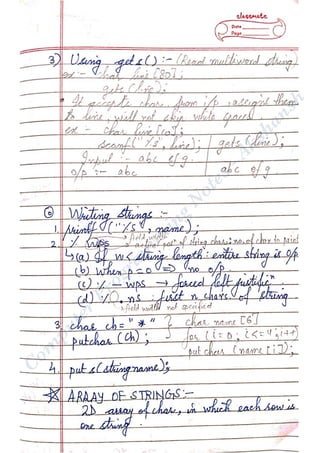 classmate
Date
Page
3) Using gets() :- (Read multiword string)
ex :- char line [80];
gets (line);
• It accepts char from i/p, assigns them
to line, will not skip white spaces
ex - char line [10];
scanf("%s", line); | gets (line);
Input :- abc efg.
o/p :- abc | abc efg
⑥ Writing Strings :-
1. printf ("%s", name);
2. % wps → field width
→ (a) If w < string length : entire string is o/p
(b) When p=0 => no o/p.
(c) % - wps → forced left justific.
(d) % . ns : first n chars of string
→ field width not specified
3. char ch = "*" } char name [6]
putchar (ch); } for (i=0; i<=4; i++)
putchar (name [i]);
4. puts (string name);
☆ ARRAY OF STRINGS:-
2D array of char, in which each row is
one string